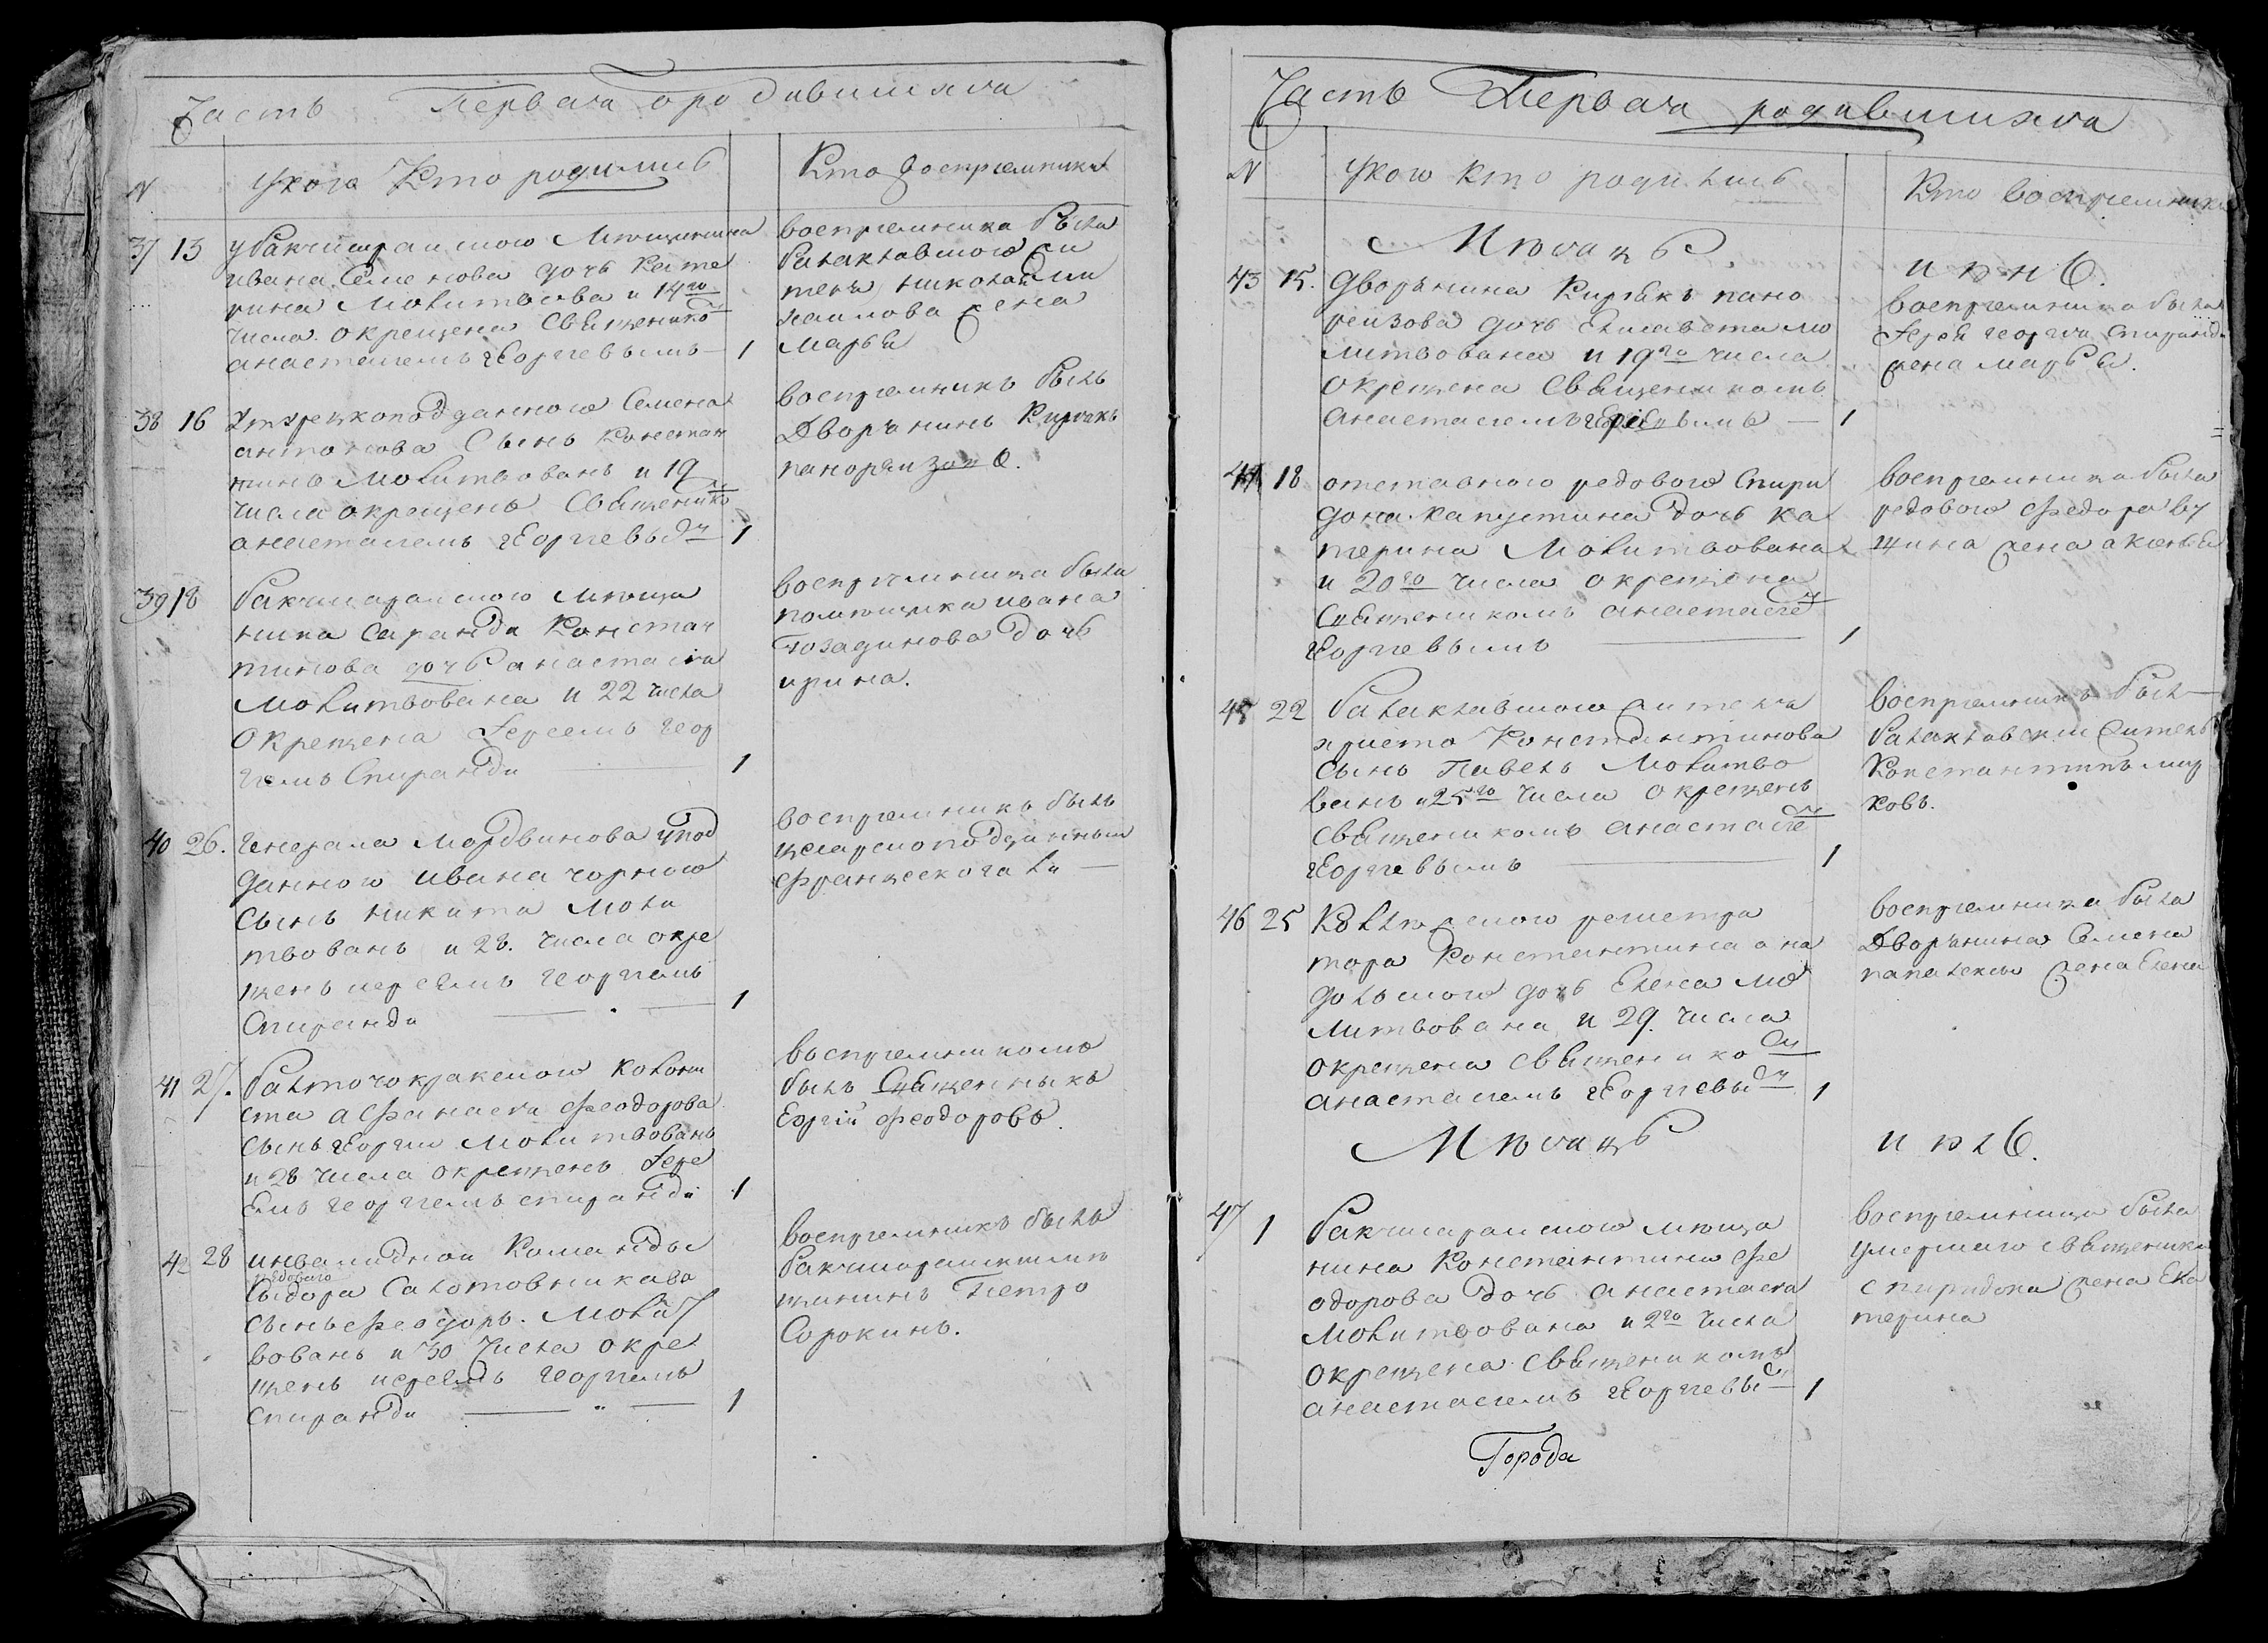 Часть Первая о родившихся
N
Укого Кто родились
Кто воспреемники
37 13 у бакчисарайского Мещанина
ивана Семенова дочь Кате
рина Молитвова и 14го
числа окрещена Священником
анастасиемъ гЕоргиевымъ — 1
воспреемника была
балаклавского жи
теля николая ми
хаилова жена
марья
38 16 Утурецкоподданного Семена
антонова Сынъ констан
тинъ Молитвованъ и 19
числа окрещенъ Священником
анастасиемъ гЕоргиевым — 1
воспреемникъ былъ
Дворянинъ Кирьякъ
панорейзовъ.
39 18 бакчисарайского мещани
нина Саранди Констан
тинова дочь анастасия
Молитвована и 22 числа
Окрещена Iереемъ геор
гиемъ Спиранди — 1
воспреемница была
помещика ивана
дочь
ирина.
40 26. генерала Мордвинова упод
данного ивана чорного
Сынъ никита Моли
твованъ и 28. числа окре
щенъ иереемъ георгиемъ
Спиранди — 1
воспреемникъ былъ
цесарскоподданным
франческо гали —
41 27. балточокракского колони
ста афанасия феодорова
Сынъ гЕоргии Молитвованъ
и 28 числа окрещенъ Iере
емъ георгиемъ спиранди 1
воспреемникомъ
былъ Священникъ
Еоргiй феодоровъ.
42 28 инвалидной Команды
рядового
Сидора Салотовникава
Сынъ феодоръ. Молит
вованъ и 30 числа окре
щенъ иереемъ георгиемъ
спиранди — 1
воспреемникъ былъ
бакчисарайский ме
щанинъ Петро
Сорокинъ.
Часть Первая родившихся
N
Укого кто родились
Кто воспреемники
Месяцъ
июнь.
43 15. Дворянина Кирьякъ пано
реизова дочь Елисавета мо
литвована и 19го числа
окрещена Священникомъ
анастасиемъ — 1
воспреемница была
Iерея георгия Спиранди
жена марья.
44 18 отставного редового Спири
дона капустина дочь ка
терина Молитвована
и 20го числа окрещена
Священникомъ анастасием
гЕоргиевымъ — 1
воспреемница была
редового федора
жена
45 22 балаклавского жителя
христо Константинова
Сынъ Павелъ Молитво
ванъ и 25го числа окрещенъ
Священникомъ анастасием
гЕоргиевымъ — 1
воспреемникъ был —
балаклавский житель
Константинъ мир
ковъ.
46 25 Колежского регистра
тора Константина ана
дольского дочь Елена мо
литвована и 29. числа
окрещена священником
анастасиемъ гЕоргиевым 1
воспреемница была
Дворянина Семена
жена Елена
Месяцъ
июль.
47 1 бакчисарайского меща
нина Константина фе
одорова дочь анастасия
Молитвована и 2го числа
окрещена Священникомъ
анастасиемъ гЕоргиевым — 1
воспреемница была
умершаго священника
спиридона жена Ека
терина
Города